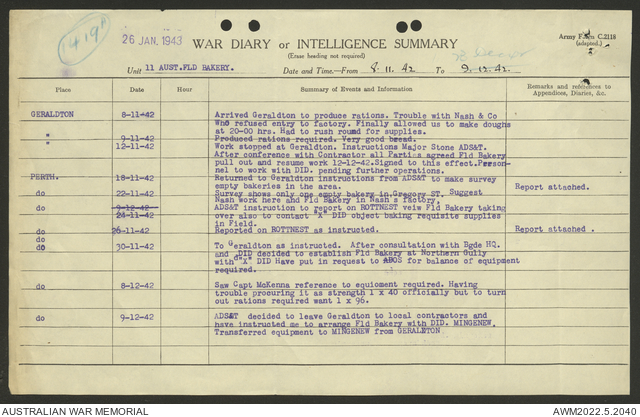 1419
26 JAN. 1943
WAR DIARY or INTELLIGENCE SUMMARY
(Erase heading not required)
Army Form C.2118
(adapted.)
Unit 11 AUST.FLD BAKERY.
Date and Time.—From 8.11.42 To 9.12.42.
Place Date Hour Summary of Events and Information Remarks and references to
Appendices, Diaries, &c.
GERALDTON 8-11-42 Arrived Geraldton to produce rations. Trouble with Nash & Co
Who refused entry to factory. Finally allowed us to make doughs
at 20-00 hrs. Had to rush round for supplies.
" 9-11-42 Produced rations required. Very good bread.
" 12-11-42 Work stopped at Geraldton. Instructions Major Stone ADS&T.
After conference with Contractor all Parties agreed Fld Bakery
pull out and resume work 12-12-42.Signed to this effect.Person-
nel to work with DID. pending further operations.
PERTH. 18-11-42 Returned to Geraldton instructions from ADS&T to make survey
empty bakeries in the area.
do 22-11-42 Survey shows only one empty bakery in Gregory ST. Suggest Report attached.
Nash work here and Fld Bakery in Nash's factory.
do 9-12-42 ADS&T instruction to report on ROTTNEST veiw Fld Bakery taking
24-11-42 over also to contact "X" DID object baking requisite supplies
in Field.
do 26-11-42 Reported on ROTTNEST as instructed. Report attached .
do
do 30-11-42 To Geraldton as instructed. After consultation with Bgde HQ.
and DID decided to establish Fld Bakery at Northern Gully
with "X" DID Have put in request to ADOS for balance of equipment
required.
do 8-12-42 Saw Capt McKenna reference to equioment required. Having
trouble procuring it as strength 1 x 40 officially but to turn
out rations required want 1 x 96.
do 9-12-42 ADS&T decided to leave Geraldton to local contractors and
have instructed me to arrange Fld Bakery with DID. MINGENEW.
Transferred equipment to MINGENEW from GERALDTON
AUSTRALIAN WAR MEMORIAL AWM2022.5.2040